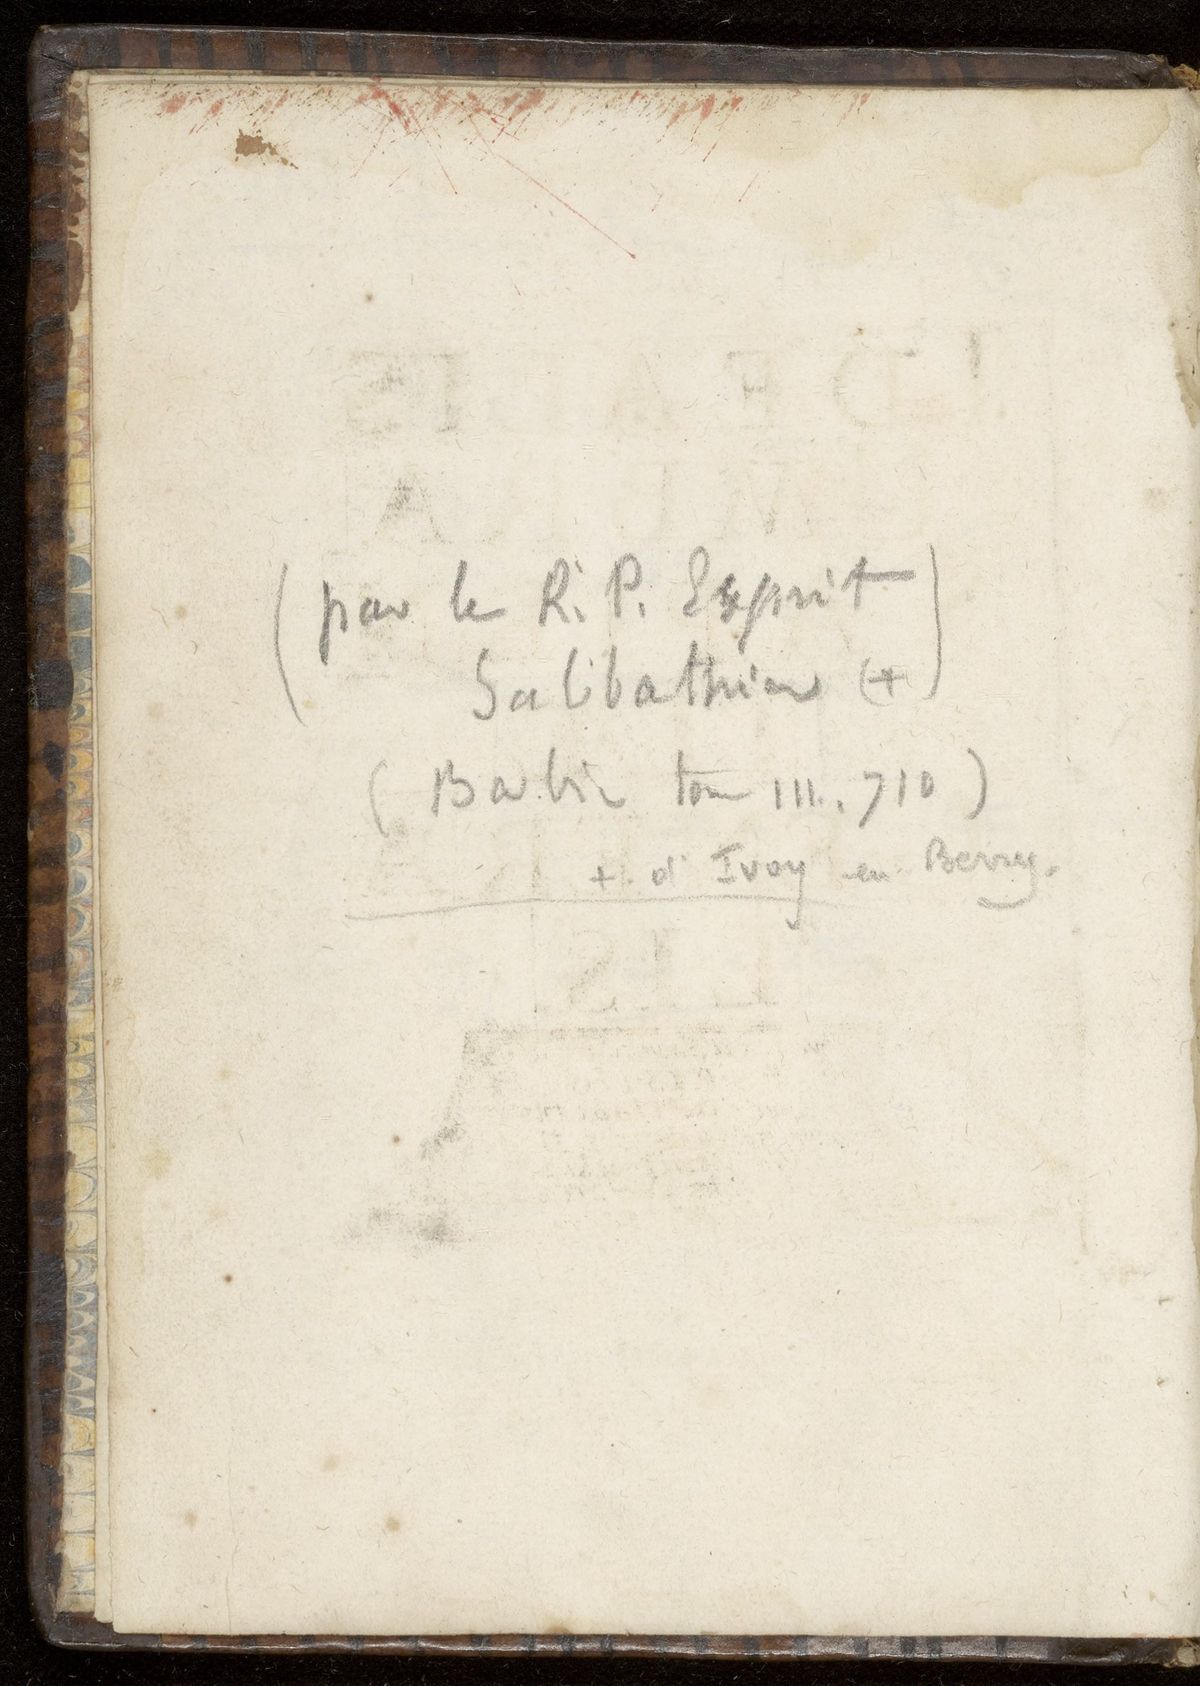 (par le R. P. Esprit
Sabbathier (+)
(Barbier tom III. 710)
+ d'Ivoy en Berry.